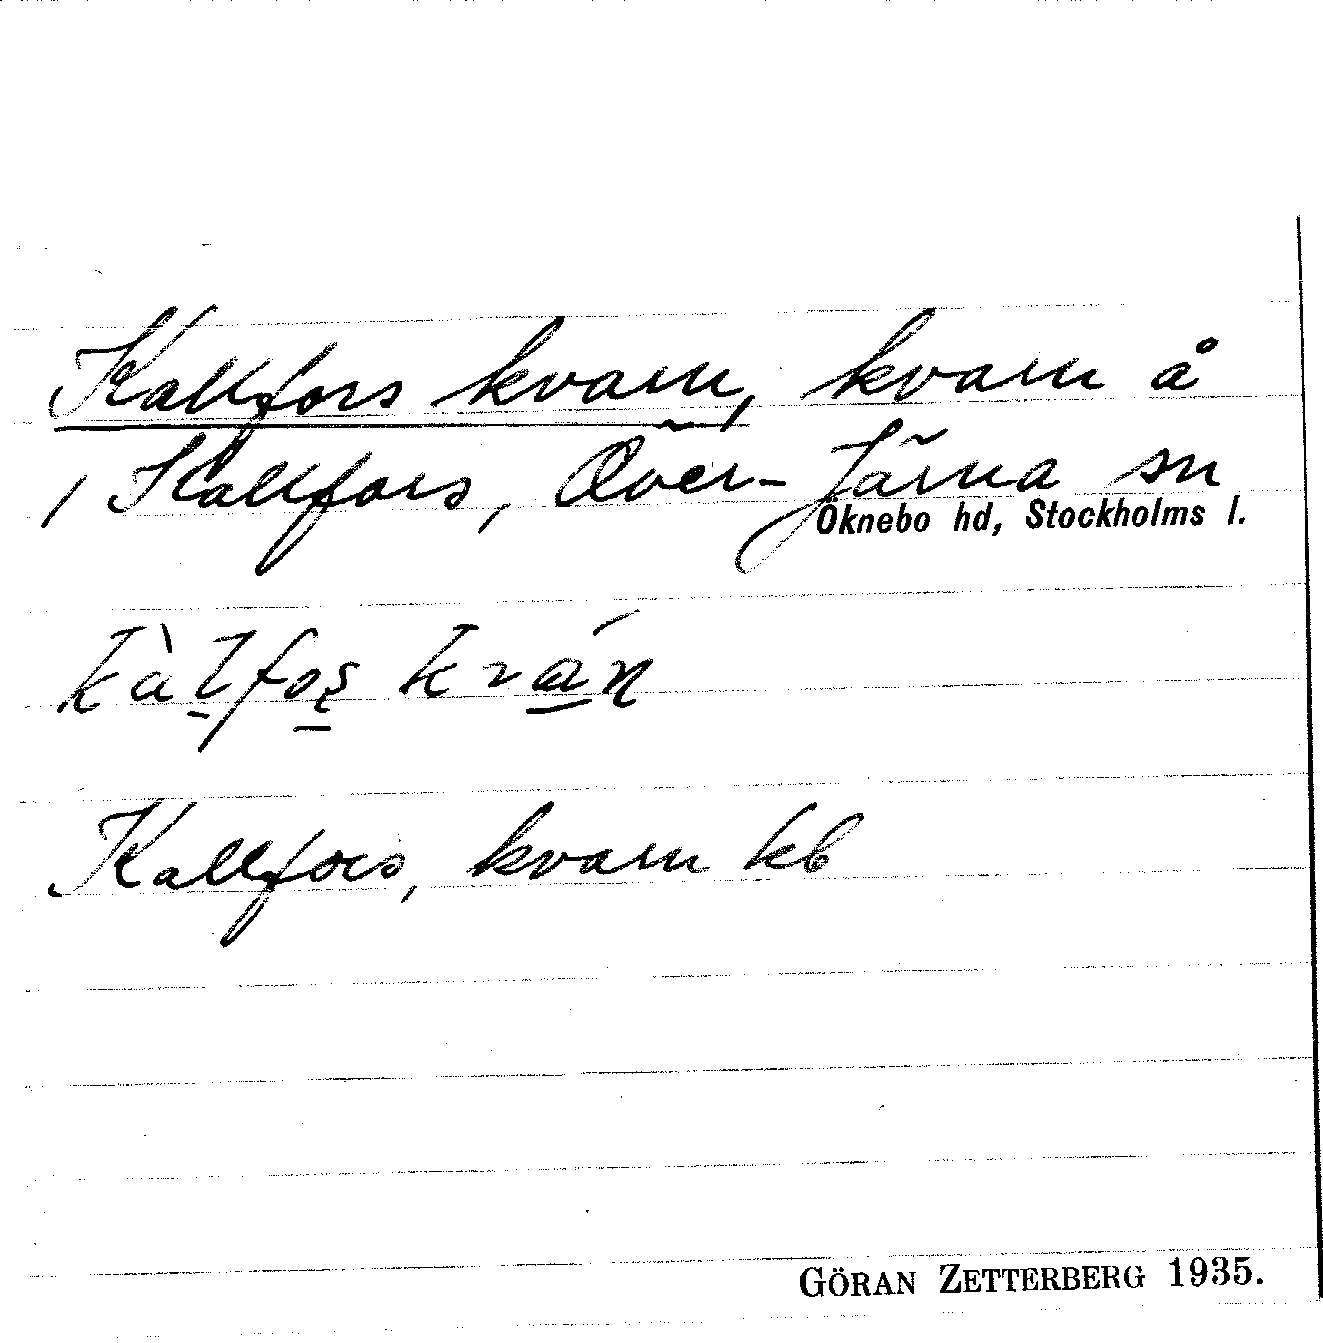 Kallfors kvarn, kvarn å
1 Kallfors, Över-Järna sn
Öknebo hd, Stockholms l.
kàlfoş kván
Kallfors, kvarn kb
GÖRAN ZETTERBERG 1935.